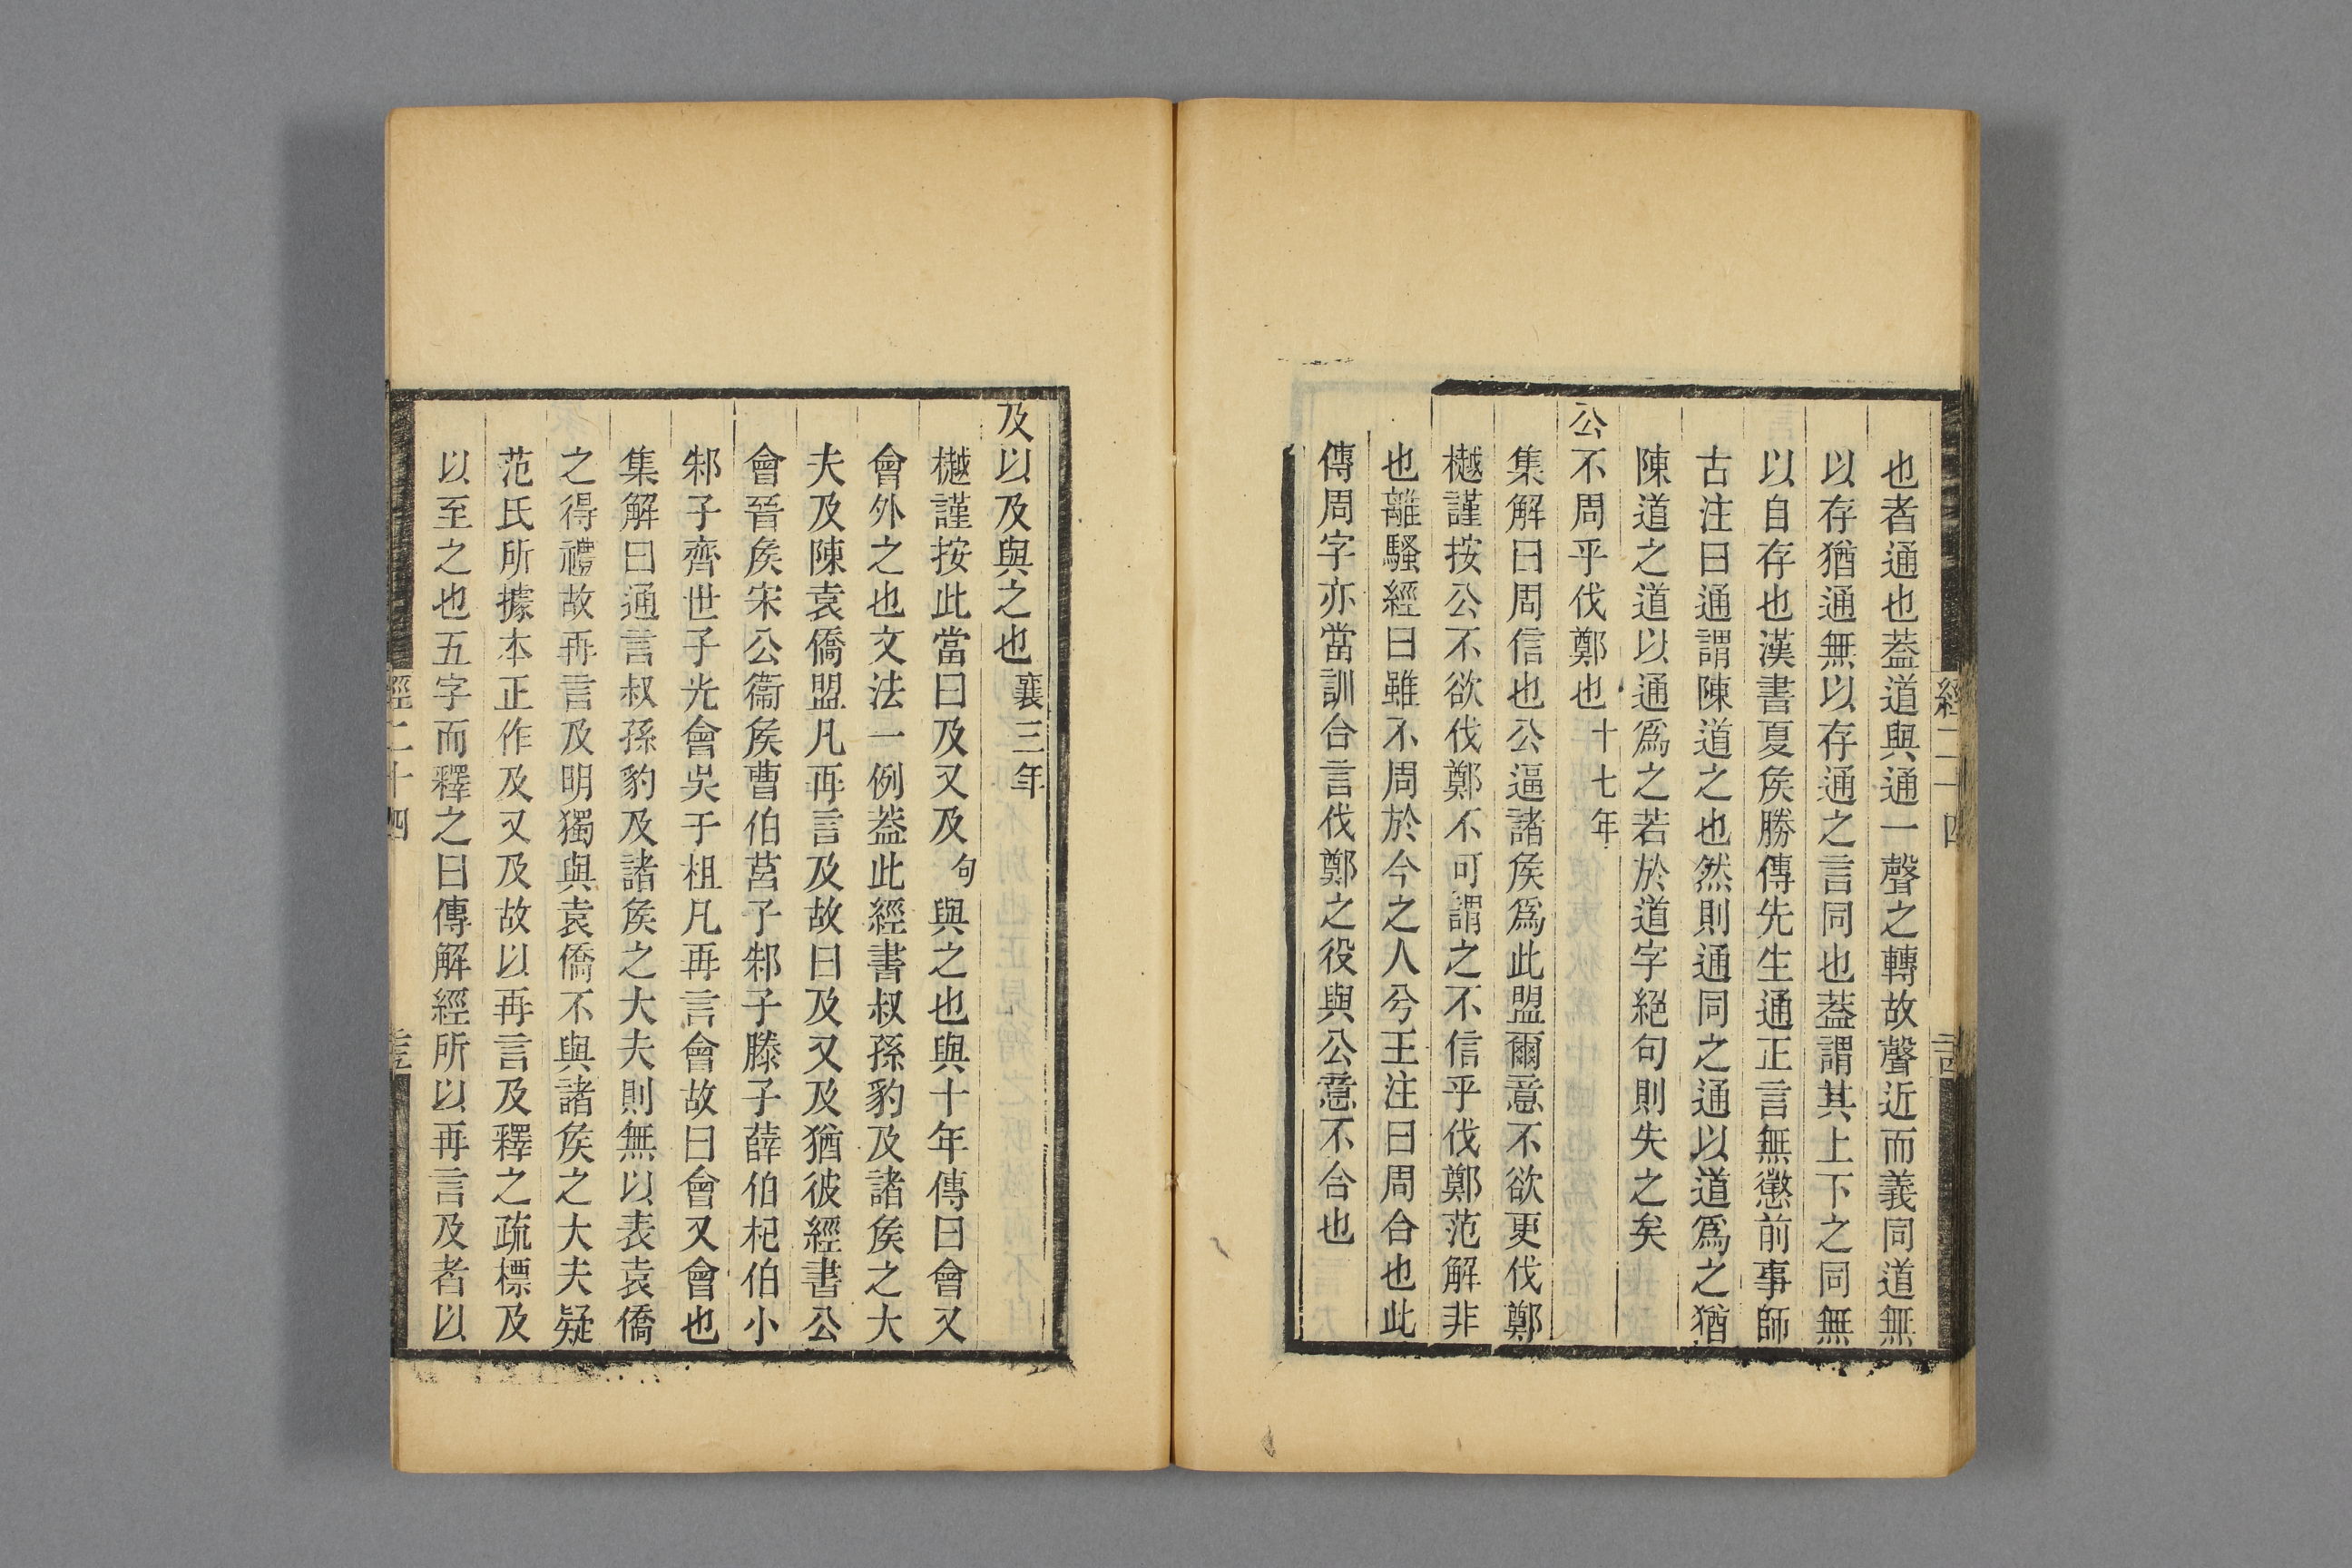 也者通也葢道與通一聲之轉故聲近而義同道無
以存猶通無以存通之言同也葢謂其上下之同無
以自存也漢書夏矦勝傳先生通正言無懲前事師
古注曰通謂陳道之也然則通同之通以道爲之猶
陳道之道以通爲之若於道字絕句則失之矣
公不周乎伐鄭也十七年
集解曰周信也公逼諸矦爲此盟爾意不欲更伐鄭
樾謹按公不欲伐鄭不可謂之不信乎伐鄭范解非
也離騷經曰雖不周於今之人兮王注曰周合也此
傳周字亦當訓合言伐鄭之役與公意不合也
及以及與之也襄三年
樾謹按此當曰及又及句與之也與十年傳曰會又
會外之也文法一例葢此經書叔孫豹及諸矦之大
夫及陳袁僑盟凡再言及故曰及又及猶彼經書公
會晉矦宋公衞矦曹伯莒子邾子滕子薛伯杞伯小
邾子齊世子光會吳于柤凡再言會故曰會又會也
集解曰通言叔孫豹及諸矦之大夫則無以表袁僑
之得禮故再言及明獨與袁僑不與諸矦之大夫疑
范氏所據本正作及又及故以再言及釋之疏標及
以至之也五字而釋之曰傳解經所以再言及者以
經二十四